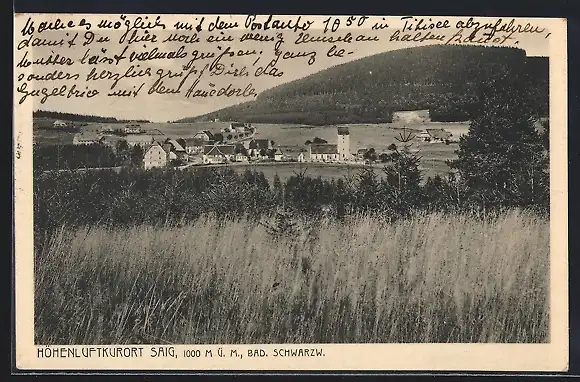 Wäre es möglich mit dem Postauto 10 50 in Titisee abzufahren,
damit Du hier noch ein wenig Umschau halten kannst.
Mutter lässt vielmals grüßen. Ganz be-
sonders herzlich grüßt Dich das
Engelbrice mit dem
HÖHENLUFTKURORT SAIG, 1000 M Ü. M., BAD. SCHWARZW.